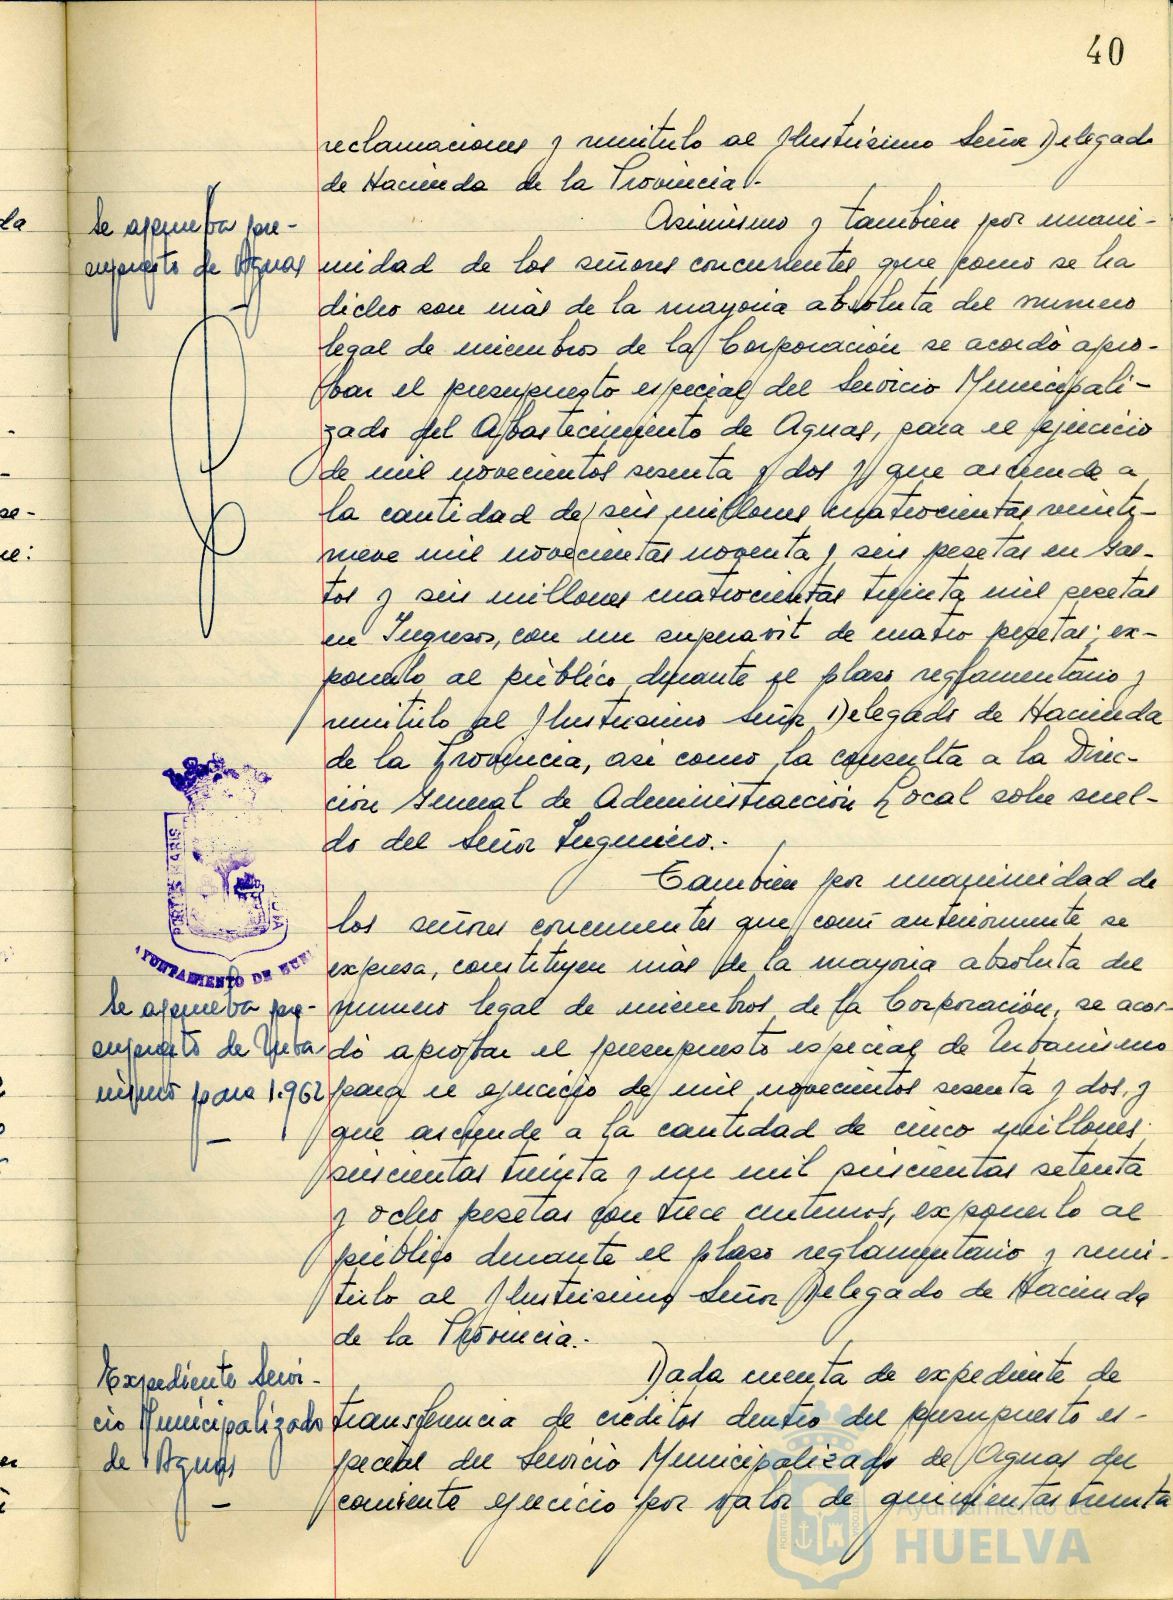 40
reclamaciones y remitirlo al Ilustrisimo Señor Delegado
de Hacienda de la Provincia.-
Se aprueba pre-
supuesto de Aguas
Asimismo y tambien por unani-
midad de los señores concurrentes que como se ha
dicho son más de la mayoria absoluta del numero
legal de miembros de la Corporación se acordó apro-
bar el presupuesto especial del Servicio Municipali-
zado del Abastecimiento de Aguas, para el ejercicio
de mil novecientos sesenta y dos y que asciende a
la cantidad de seis millones cuatrocientas veinti-
nueve mil novecientas noventa y seis pesetas en Gas-
tos y seis millones cuatrocientas treinta mil pesetas
en Ingresos, con un superavit de cuatro pesetas; ex-
ponerlo al público durante el plaso reglamentario y
remitirlo al Ilustrisimo Señor Delegado de Hacienda
de la Provincia, asi como la consulta a la Direc-
ción General de Administracción Local sobre suel-
do del Señor Ingeniero.-
PORTUS MARIS
AYUNTAMIENTO DE HUEL
Se aprueba pre-
supuesto de Urba-
nismo para 1.962
Tambien por unanimidad de
los señores concurrentes que como anteriormente se
expresa, constituyen más de la mayoria absoluta del
numero legal de miembros de la Corporación, se acor-
dó aprobar el presupuesto especial de Urbanismo
para el ejercicio de mil novecientos sesenta y dos, y
que asciende a la cantidad de cinco millones
seiscientas treinta y un mil seiscientas setenta
y ocho pesetas con trece centimos, exponerlo al
público durante el plaso reglamentario y remi-
tirlo al Ilustrisimo Señor Delegado de Hacienda
de la Provincia.-
Expediente Servi-
cio Municipalizado
de Aguas
Dada cuenta de expediente de
transferencia de créditos dentro del presupuesto es-
pecial del Servicio Municipalizado de Aguas del
corriente ejercicio por valor de quinientas treinta
Ayuntamiento de
HUELVA